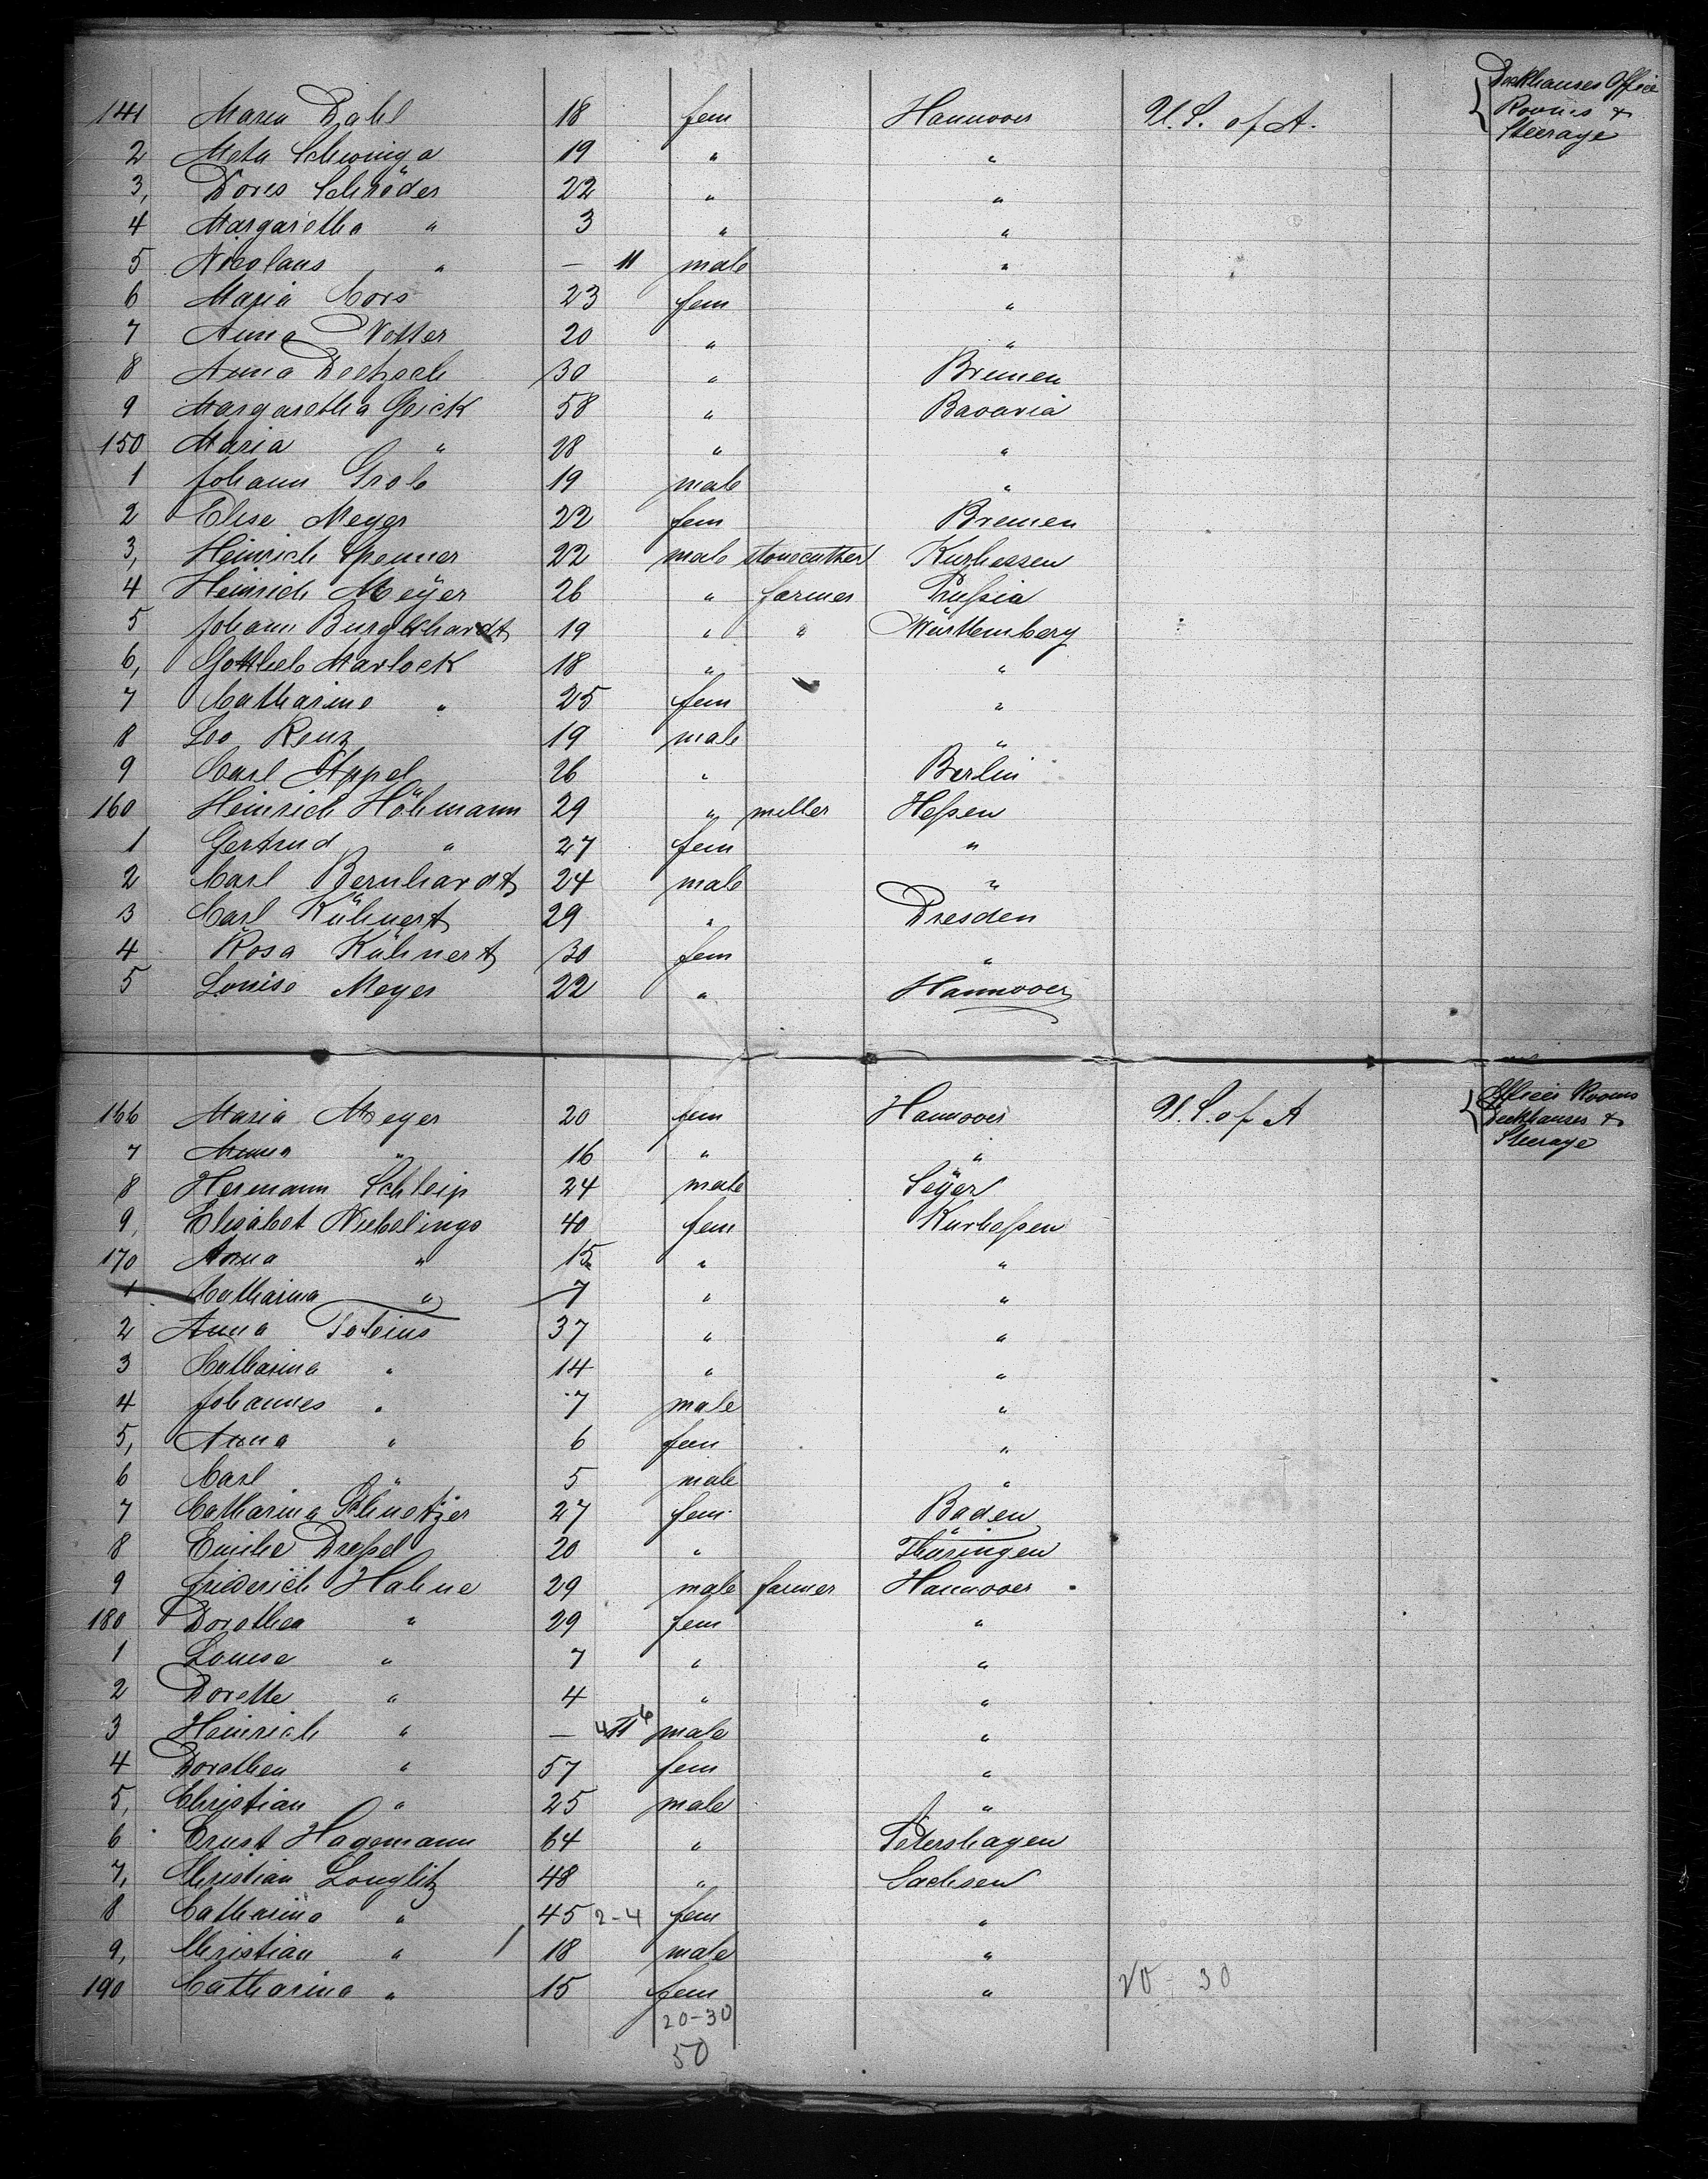 141 Maria Dahl 18 fem Hannover U.S. of A. Deckhauses Office
Rooms &
Steerage
2 Meta Schwinga 19 " "
3, Doris Schröder 22 " "
4 Margaretha " 3 " "
5 Nicolaus " — 11 male "
6 Maria Cors 23 fem "
7 Anna Notter 20 " "
8 Anna Dietzsch 30 " Bremen
9 Margaretha Geick 58 " Bavaria
150 Maria " 28 " "
1 Johann Grob 19 male "
2 Elise Meyer 22 fem Bremen
3, Heinrich Spenner 22 male stonecutther Kurhessen
4 Heinrich Meÿer 26 " farmer Prussia
5 Johann Burgkhardt 19 " " Württemberg
6, Gottlieb Marlock 18 " "
7 Catharine " 25 fem "
8 Leo Renz 19 male "
9 Carl Appel 26 " Berlin
160 Heinrich Höhmann 29 " miller Hessen
1 Gertrud " 27 fem "
2 Carl Bernhardt 24 male "
3 Carl Kühnert 29 " Dresden
4 Rosa Kühnert 30 fem "
5 Louise Meyer 22 " Hannover
166 Maria Meyer 20 fem Hannover U.S. of A Officer Rooms
Deckhauses &
Steerage
7 " 16 " "
8 Hermann Schleip 24 male
9, Elisabet Niebelings 40 fem Kurhessen
170 Anna " 15 " "
1 Catharina " 7 " "
2 Anna Tobeins 37 " "
3 Catharina " 14 " "
4 Johannes " 7 male "
5, Anna " 6 fem "
6 Carl " 5 male "
7 Catharina 27 fem Baden
8 Emilie Dressel 20 " Thüringen
9 Friederich Hahne 29 male farmer Hannover
180 Dorothea " 29 fem "
1 Louise " 7 " "
2 Dorette " 4 " "
3 Heinrich " — 11 male "
4 Dorothea " 57 fem "
5, Christian " 25 male "
6 Ernst Hagemann 64 " Petershagen
7, Christian Longlitz 48 " Sachsen
8 Catharina " 45 2-4 fem "
9, Christian " 18 male "
190 Catharina " 15 fem " 20 - 30
20-30
50